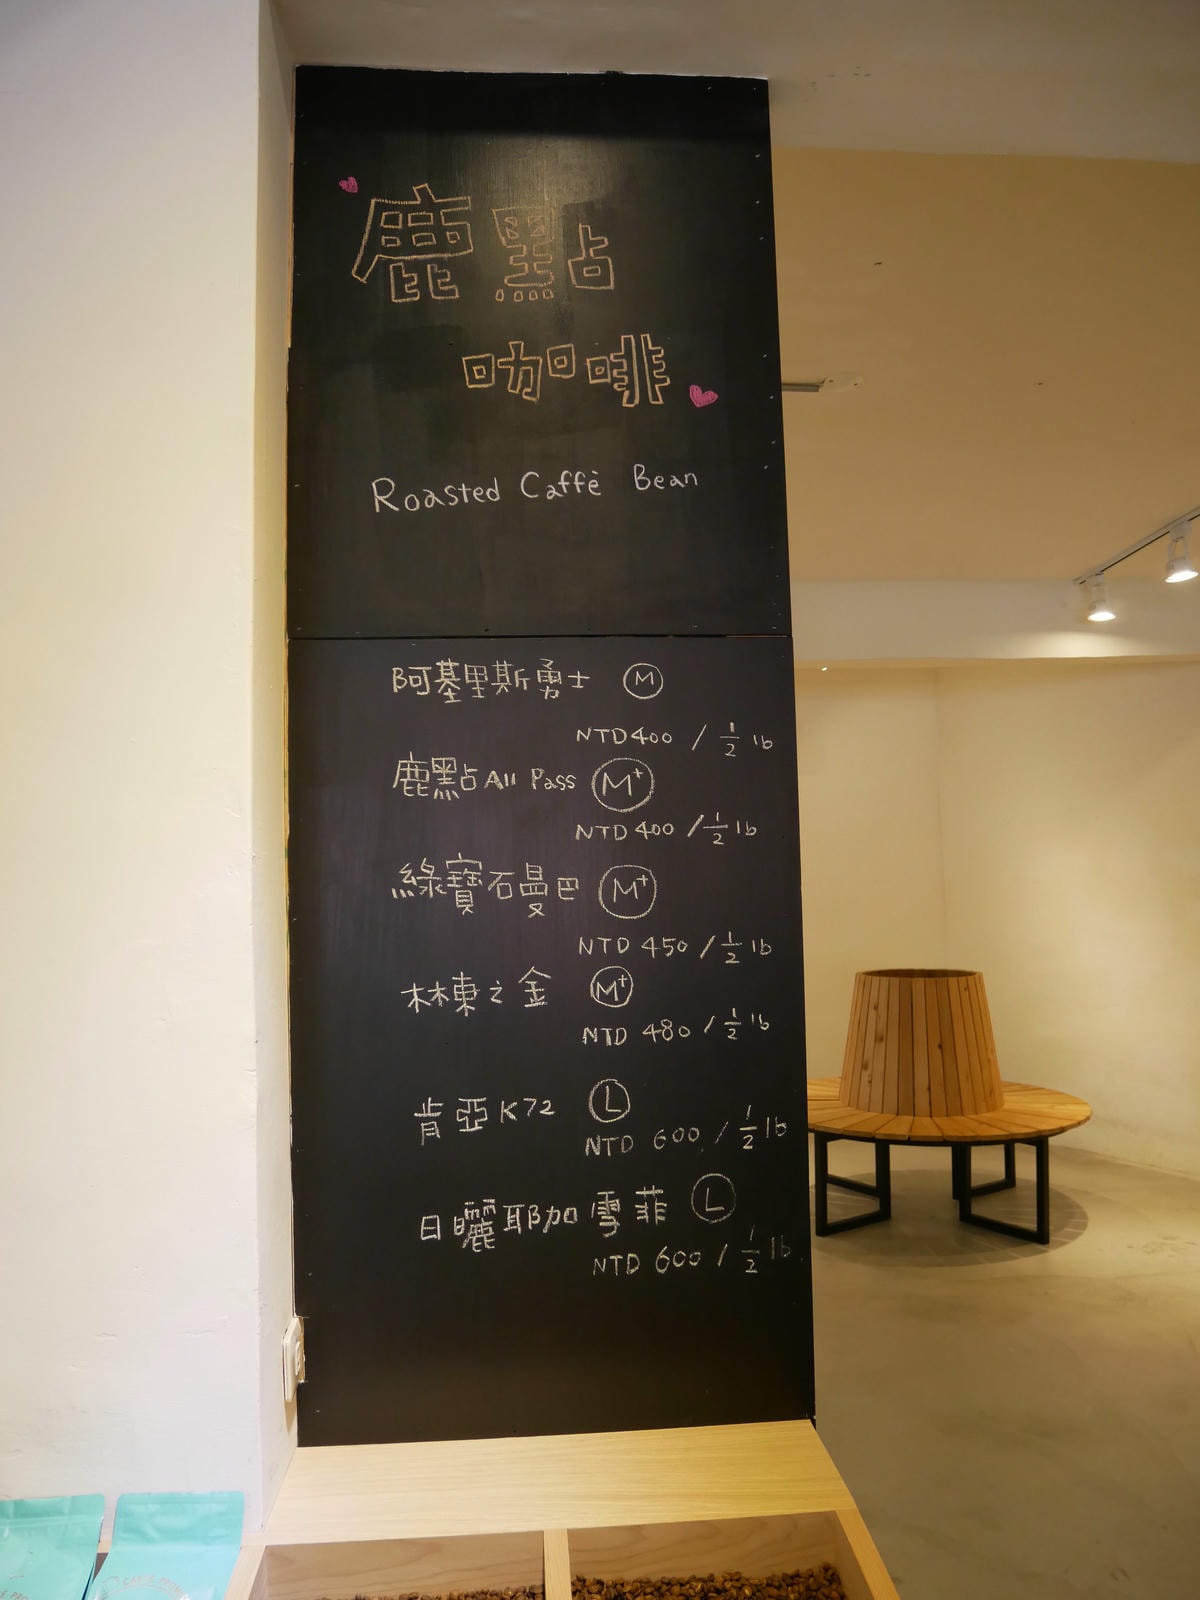 鹿點
咖啡
Roasted Caffè Bean
阿基里斯勇士 M
NTD400 / 1/2 lb
鹿點 All Pass M+
NTD 400 / 1/2 lb
綠寶石曼巴 M+
NTD 450 / 1/2 lb
林東之金 M+
NTD 480 / 1/2 lb
肯亞K72 L
NTD 600 / 1/2 lb
日曬耶加雪菲 L
NTD 600 / 1/2 lb